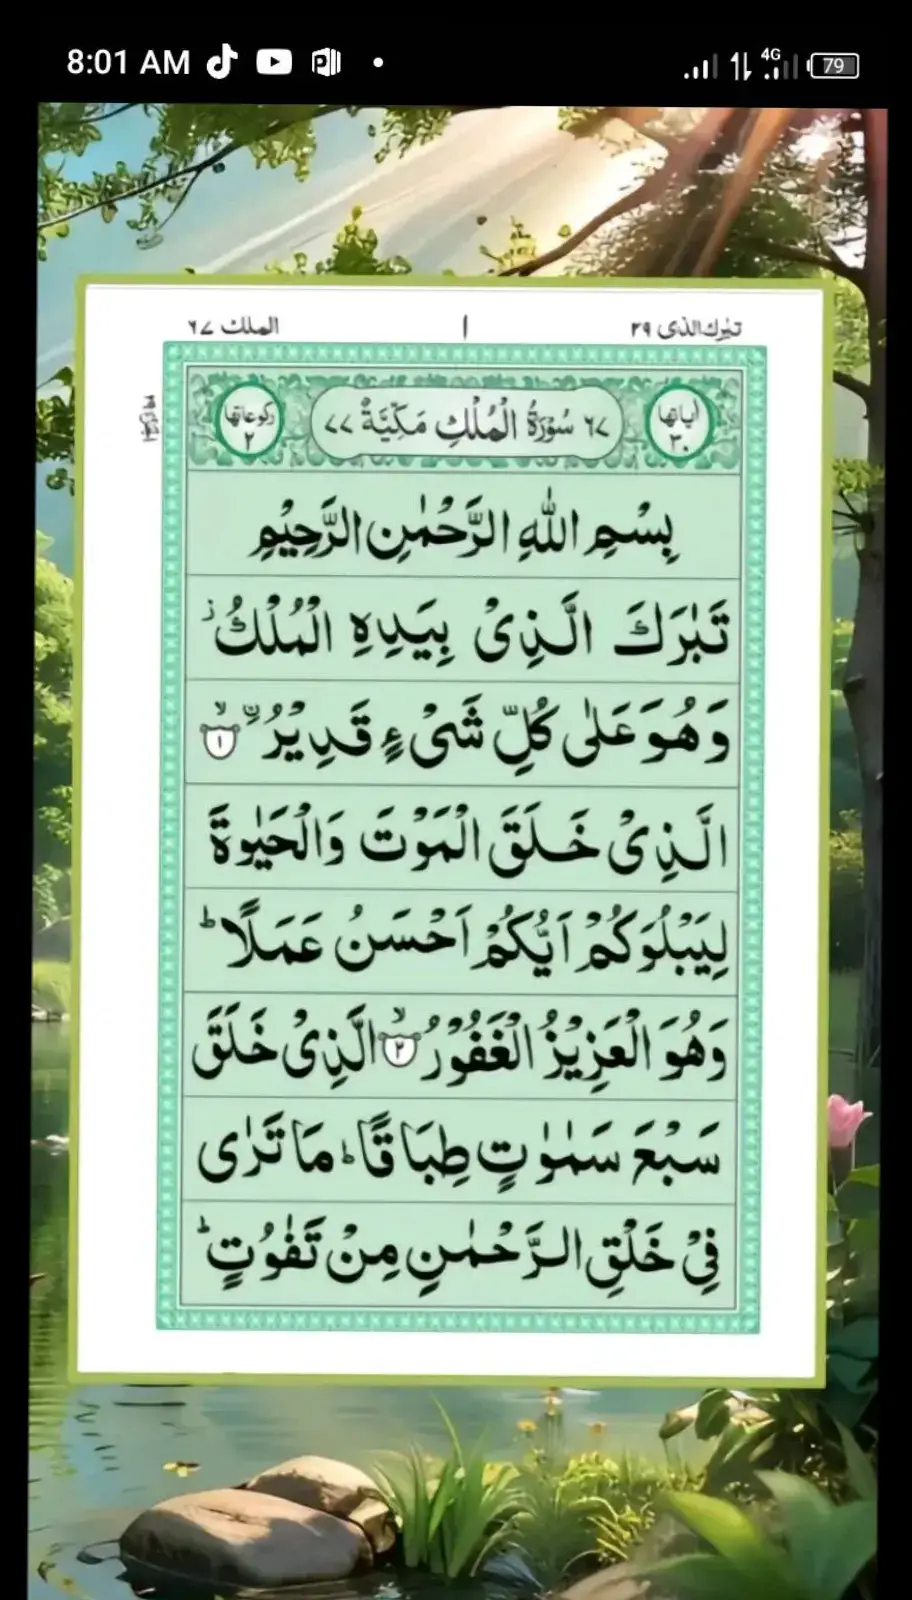 8:01 AM
4G
79
تبٰرك الذی ٢٩
١
الملك ٦٧
اٰیاتها ٣٠
٦٧ سُوْرَةُ الْمُلْكِ مَكِّيَّةٌ ٧٧
ركوعاتها ٢
بِسْمِ اللّٰهِ الرَّحْمٰنِ الرَّحِيْمِ
تَبٰرَكَ الَّذِىْ بِيَدِهِ الْمُلْكُ ز
وَهُوَ عَلٰى كُلِّ شَىْءٍ قَدِيْرُ ۨ ۙ ١
الَّذِىْ خَلَقَ الْمَوْتَ وَالْحَيٰوةَ
لِيَبْلُوَكُمْ اَيُّكُمْ اَحْسَنُ عَمَلًا ؕ
وَهُوَ الْعَزِيْزُ الْغَفُوْرُ ۙ ٢ الَّذِىْ خَلَقَ
سَبْعَ سَمٰوٰتٍ طِبَاقًا ؕ مَا تَرٰى
فِىْ خَلْقِ الرَّحْمٰنِ مِنْ تَفٰوُتٍ ؕ